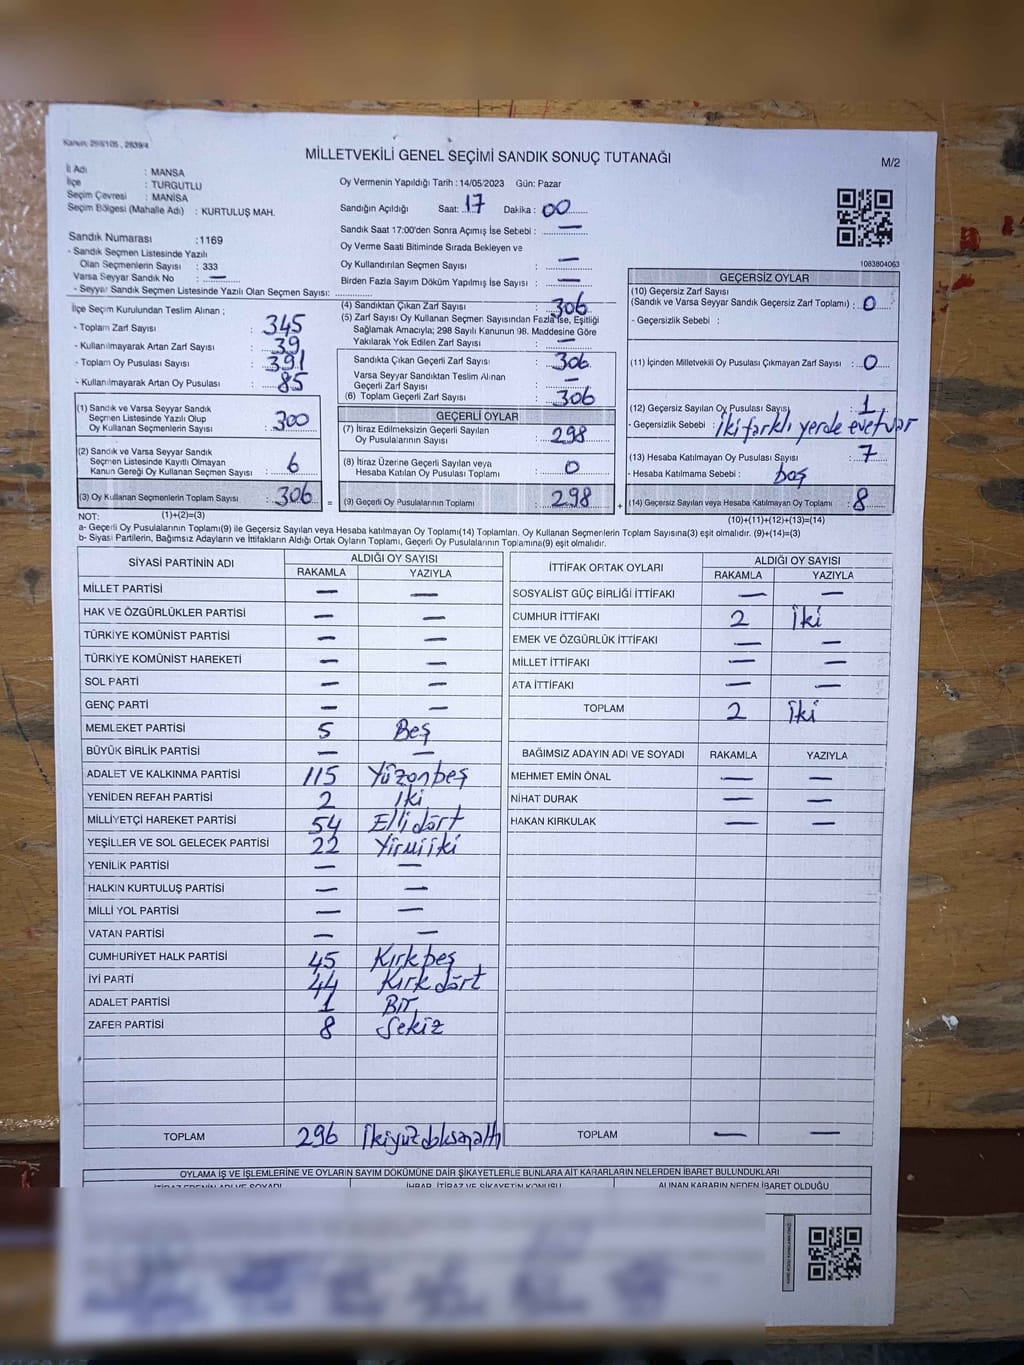 Kanun: 298/105 , 2839/4
MİLLETVEKİLİ GENEL SEÇİMİ SANDIK SONUÇ TUTANAĞI
M/2
İl Adı : MANSA
İlçe : TURGUTLU
Seçim Çevresi : MANİSA
Seçim Bölgesi (Mahalle Adı) : KURTULUŞ MAH.
Sandık Numarası :1169
- Sandık Seçmen Listesinde Yazılı
Olan Seçmenlerin Sayısı : 333
Varsa Seyyar Sandık No : —
- Seyyar Sandık Seçmen Listesinde Yazılı Olan Seçmen Sayısı:
Oy Vermenin Yapıldığı Tarih : 14/05/2023 Gün: Pazar
Sandığın Açıldığı Saat: 17 Dakika : 00
Sandık Saat 17:00'den Sonra Açımış İse Sebebi : —
Oy Verme Saati Bitiminde Sırada Bekleyen ve
Oy Kullandırılan Seçmen Sayısı : —
Birden Fazla Sayım Döküm Yapılmış İse Sayısı : —
1083804063
İlçe Seçim Kurulundan Teslim Alınan ;
- Toplam Zarf Sayısı : 345
- Kullanılmayarak Artan Zarf Sayısı : 39
- Toplam Oy Pusulası Sayısı : 391
- Kullanılmayarak Artan Oy Pusulası : 85
(1) Sandık ve Varsa Seyyar Sandık
Seçmen Listesinde Yazılı Olup
Oy Kullanan Seçmenlerin Sayısı : 300
(2) Sandık ve Varsa Seyyar Sandık
Seçmen Listesinde Kayıtlı Olmayan
Kanun Gereği Oy Kullanan Seçmen Sayısı : 6
(3) Oy Kullanan Seçmenlerin Toplam Sayısı : 306 =
(4) Sandıktan Çıkan Zarf Sayısı : 306
(5) Zarf Sayısı Oy Kullanan Seçmen Sayısından Fazla İse, Eşitliği
Sağlamak Amacıyla; 298 Sayılı Kanunun 98. Maddesine Göre
Yakılarak Yok Edilen Zarf Sayısı : —
Sandıkta Çıkan Geçerli Zarf Sayısı : 306
Varsa Seyyar Sandıktan Teslim Alınan
Geçerli Zarf Sayısı : —
(6) Toplam Geçerli Zarf Sayısı : 306
GEÇERLİ OYLAR
(7) İtiraz Edilmeksizin Geçerli Sayılan
Oy Pusulalarının Sayısı : 298
(8) İtiraz Üzerine Geçerli Sayılan veya
Hesaba Katılan Oy Pusulası Toplamı : 0
(9) Geçerli Oy Pusulalarının Toplamı : 298 +
GEÇERSİZ OYLAR
(10) Geçersiz Zarf Sayısı
(Sandık ve Varsa Seyyar Sandık Geçersiz Zarf Toplamı) : 0
- Geçersizlik Sebebi :
(11) İçinden Milletvekili Oy Pusulası Çıkmayan Zarf Sayısı : 0
(12) Geçersiz Sayılan Oy Pusulası Sayısı : 1
- Geçersizlik Sebebi : iki farklı yerde evet var
(13) Hesaba Katılmayan Oy Pusulası Sayısı : 7
- Hesaba Katılmama Sebebi : boş
(14) Geçersiz Sayılan veya Hesaba Katılmayan Oy Toplamı : 8
NOT: (1)+(2)=(3)
(10)+(11)+(12)+(13)=(14)
a- Geçerli Oy Pusulalarının Toplamı(9) ile Geçersiz Sayılan veya Hesaba katılmayan Oy Toplamı(14) Toplamları, Oy Kullanan Seçmenlerin Toplam Sayısına(3) eşit olmalıdır. (9)+(14)=(3)
b- Siyasi Partilerin, Bağımsız Adayların ve İttifakların Aldığı Ortak Oyların Toplamı, Geçerli Oy Pusulalarının Toplamına(9) eşit olmalıdır.
SİYASİ PARTİNİN ADI ALDIĞI OY SAYISI
RAKAMLA YAZIYLA
MİLLET PARTİSİ — —
HAK VE ÖZGÜRLÜKLER PARTİSİ — —
TÜRKİYE KOMÜNİST PARTİSİ — —
TÜRKİYE KOMÜNİST HAREKETİ — —
SOL PARTİ — —
GENÇ PARTİ — —
MEMLEKET PARTİSİ 5 Beş
BÜYÜK BİRLİK PARTİSİ — —
ADALET VE KALKINMA PARTİSİ 115 Yüzonbeş
YENİDEN REFAH PARTİSİ 2 İki
MİLLİYETÇİ HAREKET PARTİSİ 54 Elli dört
YEŞİLLER VE SOL GELECEK PARTİSİ 22 Yirmiiki
YENİLİK PARTİSİ — —
HALKIN KURTULUŞ PARTİSİ — —
MİLLİ YOL PARTİSİ — —
VATAN PARTİSİ — —
CUMHURİYET HALK PARTİSİ 45 Kırkbeş
İYİ PARTİ 44 Kırk dört
ADALET PARTİSİ 1 Bir
ZAFER PARTİSİ 8 Sekiz
TOPLAM 296 İkiyüzdoksanaltı
İTTİFAK ORTAK OYLARI ALDIĞI OY SAYISI
RAKAMLA YAZIYLA
SOSYALİST GÜÇ BİRLİĞİ İTTİFAKI — —
CUMHUR İTTİFAKI 2 İki
EMEK VE ÖZGÜRLÜK İTTİFAKI — —
MİLLET İTTİFAKI — —
ATA İTTİFAKI — —
TOPLAM 2 İki
BAĞIMSIZ ADAYIN ADI VE SOYADI RAKAMLA YAZIYLA
MEHMET EMİN ÖNAL — —
NİHAT DURAK — —
HAKAN KIRKULAK — —
TOPLAM — —
OYLAMA İŞ VE İŞLEMLERİNE VE OYLARIN SAYIM DÖKÜMÜNE DAİR ŞİKAYETLERLE BUNLARA AİT KARARLARIN NELERDEN İBARET BULUNDUKLARI
İTİRAZ EDENİN ADI VE SOYADI İHBAR, İTİRAZ VE ŞİKAYETİN KONUSU ALINAN KARARIN NEDEN İBARET OLDUĞU